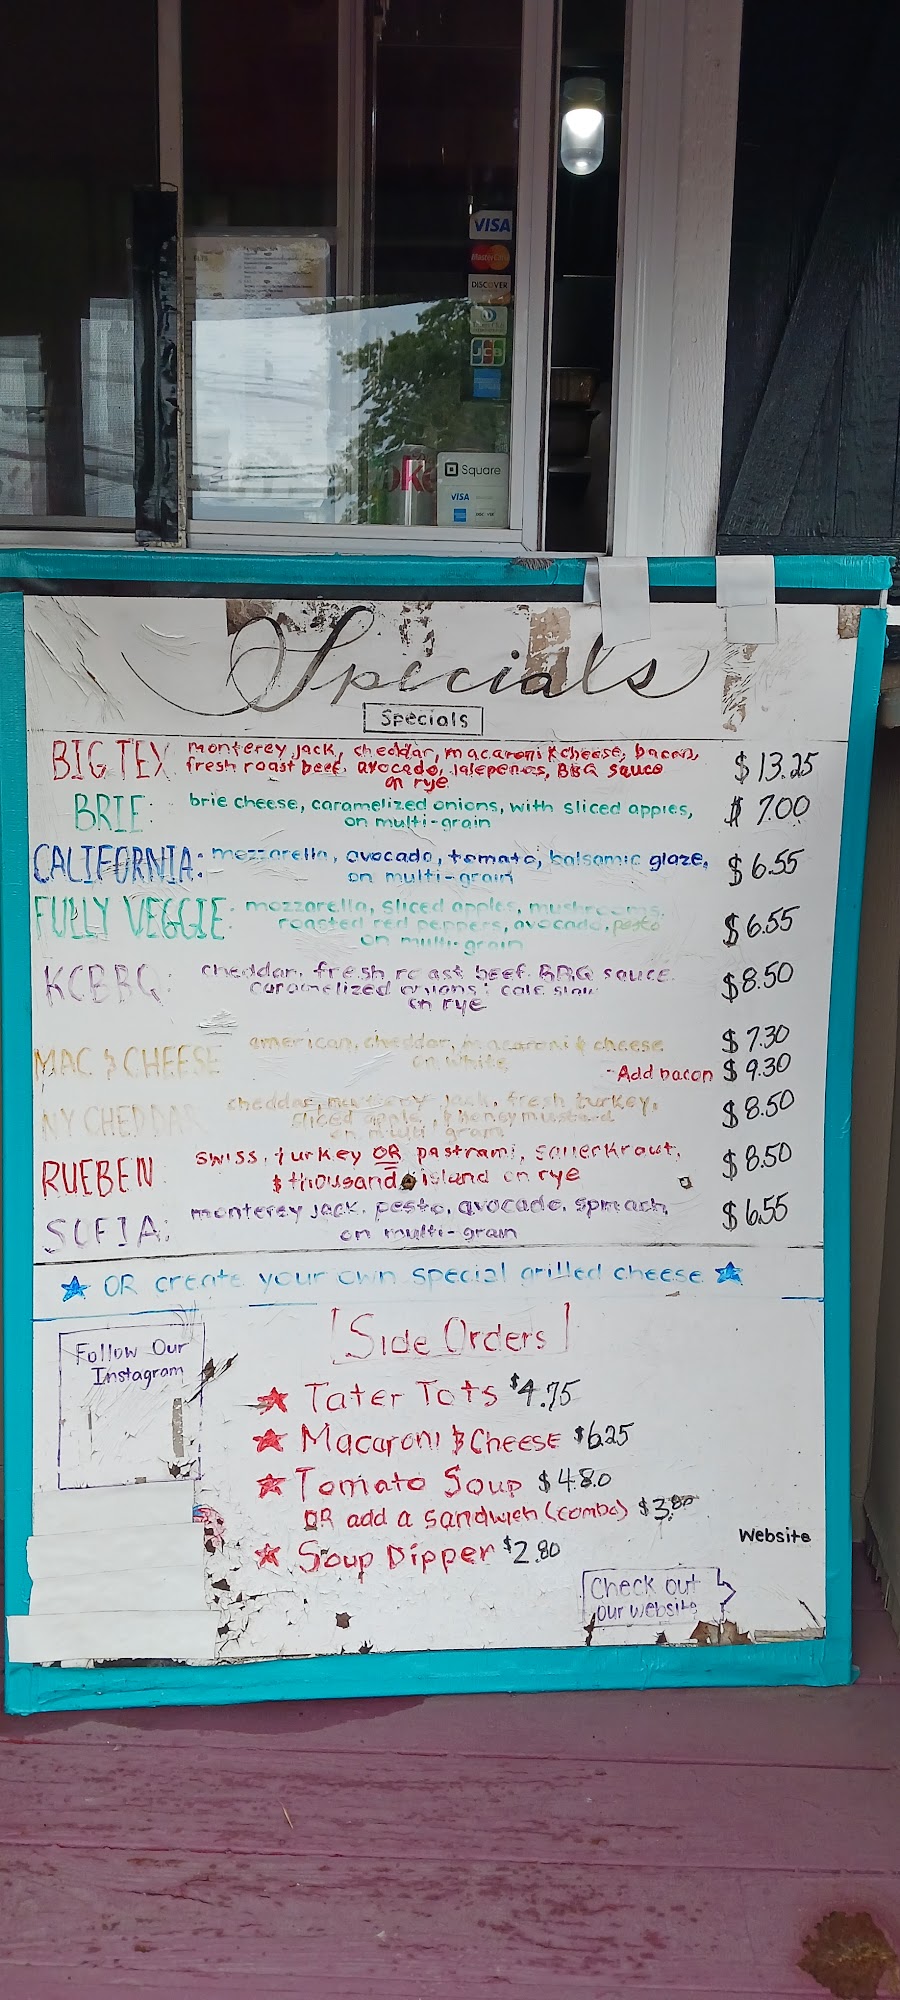 VISA
MasterCard
DISCOVER
JCB
oke
Square
VISA
DISCOVER
Specials
Specials
BIG TEX monterey jack, cheddar, macaroni & cheese, bacon, $13.25
fresh roast beef, avocado, jalepenos, BBQ sauce
on rye
BRIE: brie cheese, caramelized onions, with sliced apples, $7.00
on multi-grain
CALIFORNIA: mozzarella, avocado, tomato, balsamic glaze, $6.55
on multi-grain
FULLY VEGGIE: mozzarella, sliced apples, mushrooms, $6.55
roasted red peppers, avocado, pesto
on multi-grain
KCBBQ: cheddar, fresh roast beef, BBQ sauce, $8.50
caramelized onions, cole slaw
on rye
MAC & CHEESE american, cheddar, macaroni & cheese $7.30
on white
-Add bacon $9.30
NY CHEDDAR cheddar, monterey jack, fresh turkey, $8.50
sliced apple, & honey mustard
on multi grain
RUEBEN swiss, turkey OR pastrami, sauerkraut, $8.50
& thousand island on rye
SOFIA: monterey jack, pesto, avocado, spinach, $6.55
on multi-grain
★ OR create your own special grilled cheese ★
Follow Our
Instagram
[Side Orders]
★ Tater Tots $4.75
★ Macaroni & Cheese $6.25
★ Tomato Soup $4.80
OR add a sandwich (combo) $3.80
★ Soup Dipper $2.80
Website
Check out
our website